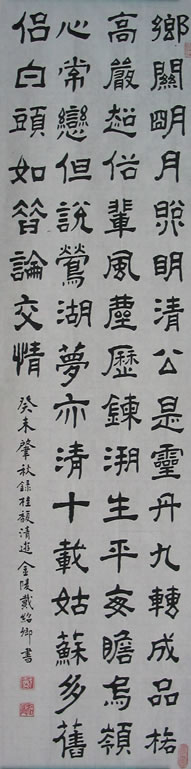 鄉關明月照眀清公是靈丹九轉成品格
高嚴超俗輩風塵歷鍊溯生平每瞻烏領
心常戀但說鶯湖夢亦清十載姑蘇多舊
侶白頭如昔論交情
癸未肇秋錄桂馥清遊金陵戴紹卿書